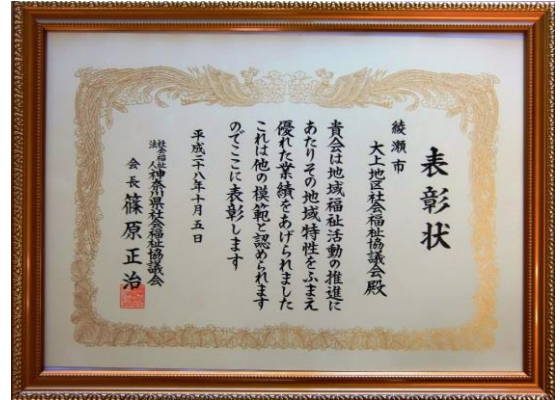 表彰状
綾瀬市
大上地区社会福祉協議会殿
貴会は地域福祉活動の推進に
あたりその地域特性をふまえ
優れた業績をあげられました
これは他の模範と認められます
のでここに表彰します
平成二十八年十月五日
社会福祉法人神奈川県社会福祉協議会
会長篠原正治